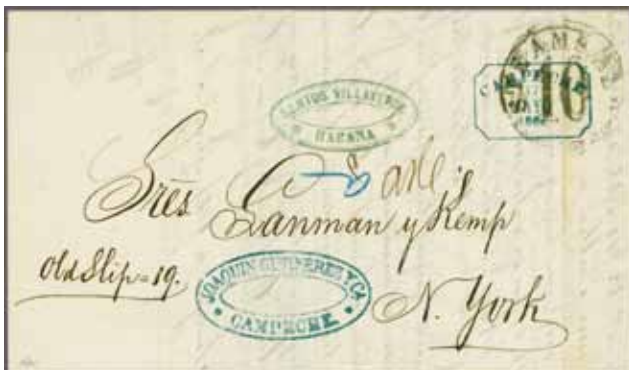 STEAMSHIP
10
CAMPECHE
SANTOS VILLAVERDE
HABANA
Sres Lanman y Kemp
Old Slip=19.
JOAQUIN GUTIERREZ Y CA
CAMPECHE
N. York